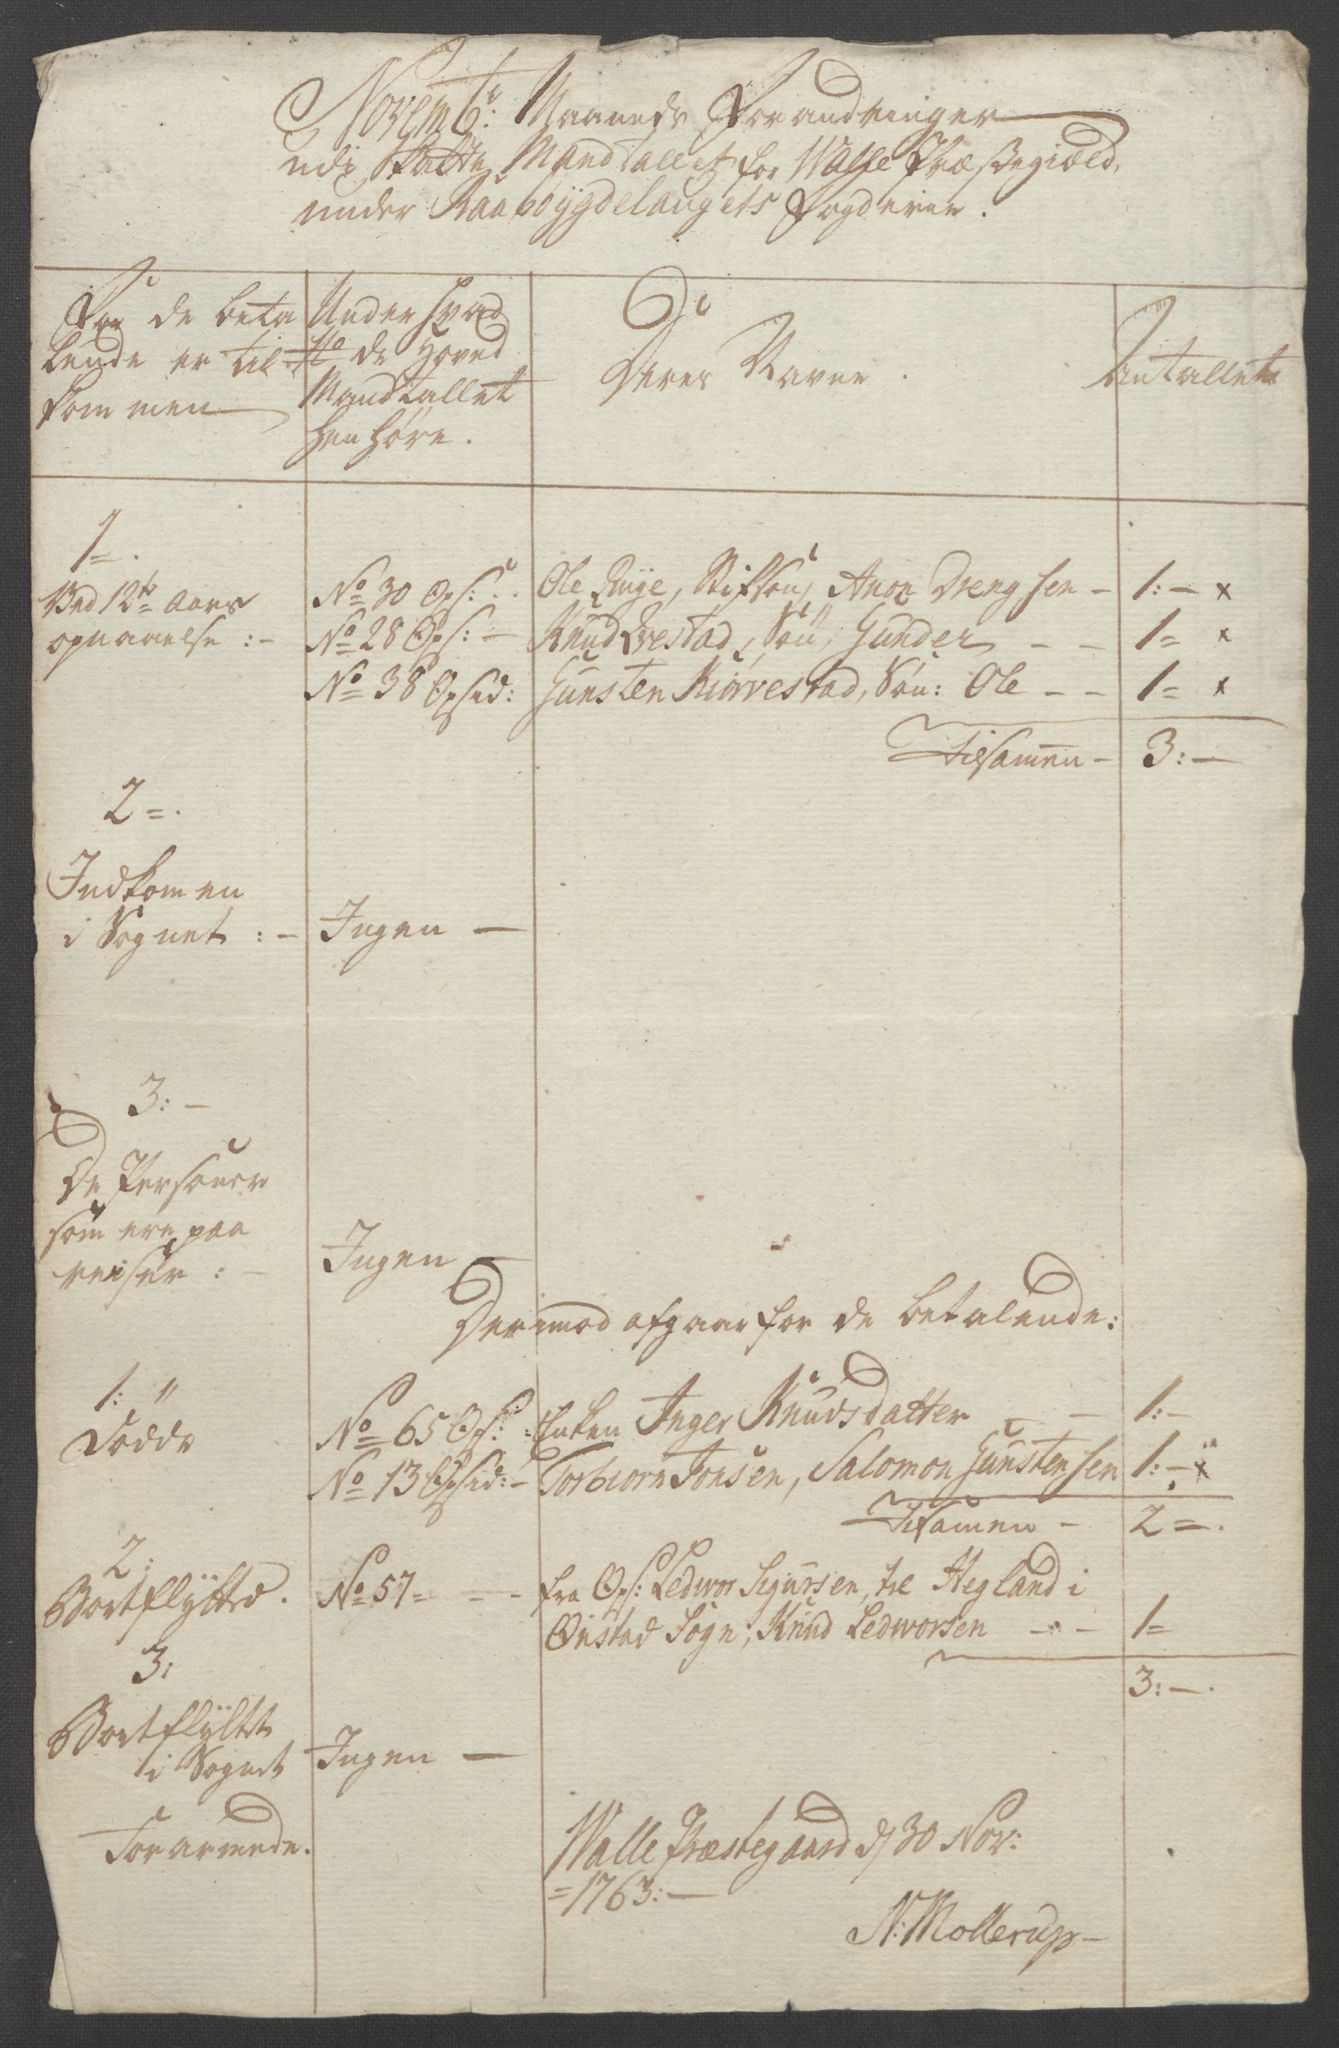 Novembr: Maaneds Forandringer
udi Skatte Mandtallet for Walle Præstegiæld,
under Raabøygdelaugets Fogderie.
For de beta
lende er til
kommen
Under hvad
No de Hoved
Mandtallet
henhøre.
Deres Navne.
Antallet
1=.
Ved 12te Aars
opnaaelse :-
No 30 Ops: . .
Ole Rige, Stifsøn, Anon Drengsen - 1:- x
No 28 Ops: - Knud Qvestad, Søn, Gunder - - 1= x
No 38 Opsid: Gunsten Kiørvestad, Søn: Ole - - 1= x
Tilsamen - 3:-
2=.
Indkomen
i Sognet :- Ingen -
3:-
De Persorner
som ere paa
reiser :- Ingen -
Derimod afgaar for de betalende:
1: "
Døde
No 65 Ops: Enken Inger Knudsdatter - 1:-
No 13 Opsid:- Torbiorn Jonsen, Salomon Gunstensen 1:- x
Tilsamen - 2=.
2:
Bortflytted. No 57= - - fra Ops: Ledwor Sigursen, til Hegland i
Østad Sogn, Knud Ledworsen - - 1=
3:-.
3:
Bortflyttt
i Sognet Ingen -
Forarmede.
Walle Præstegaard d 30 Nov:
=1763:-
N: Mollerup-